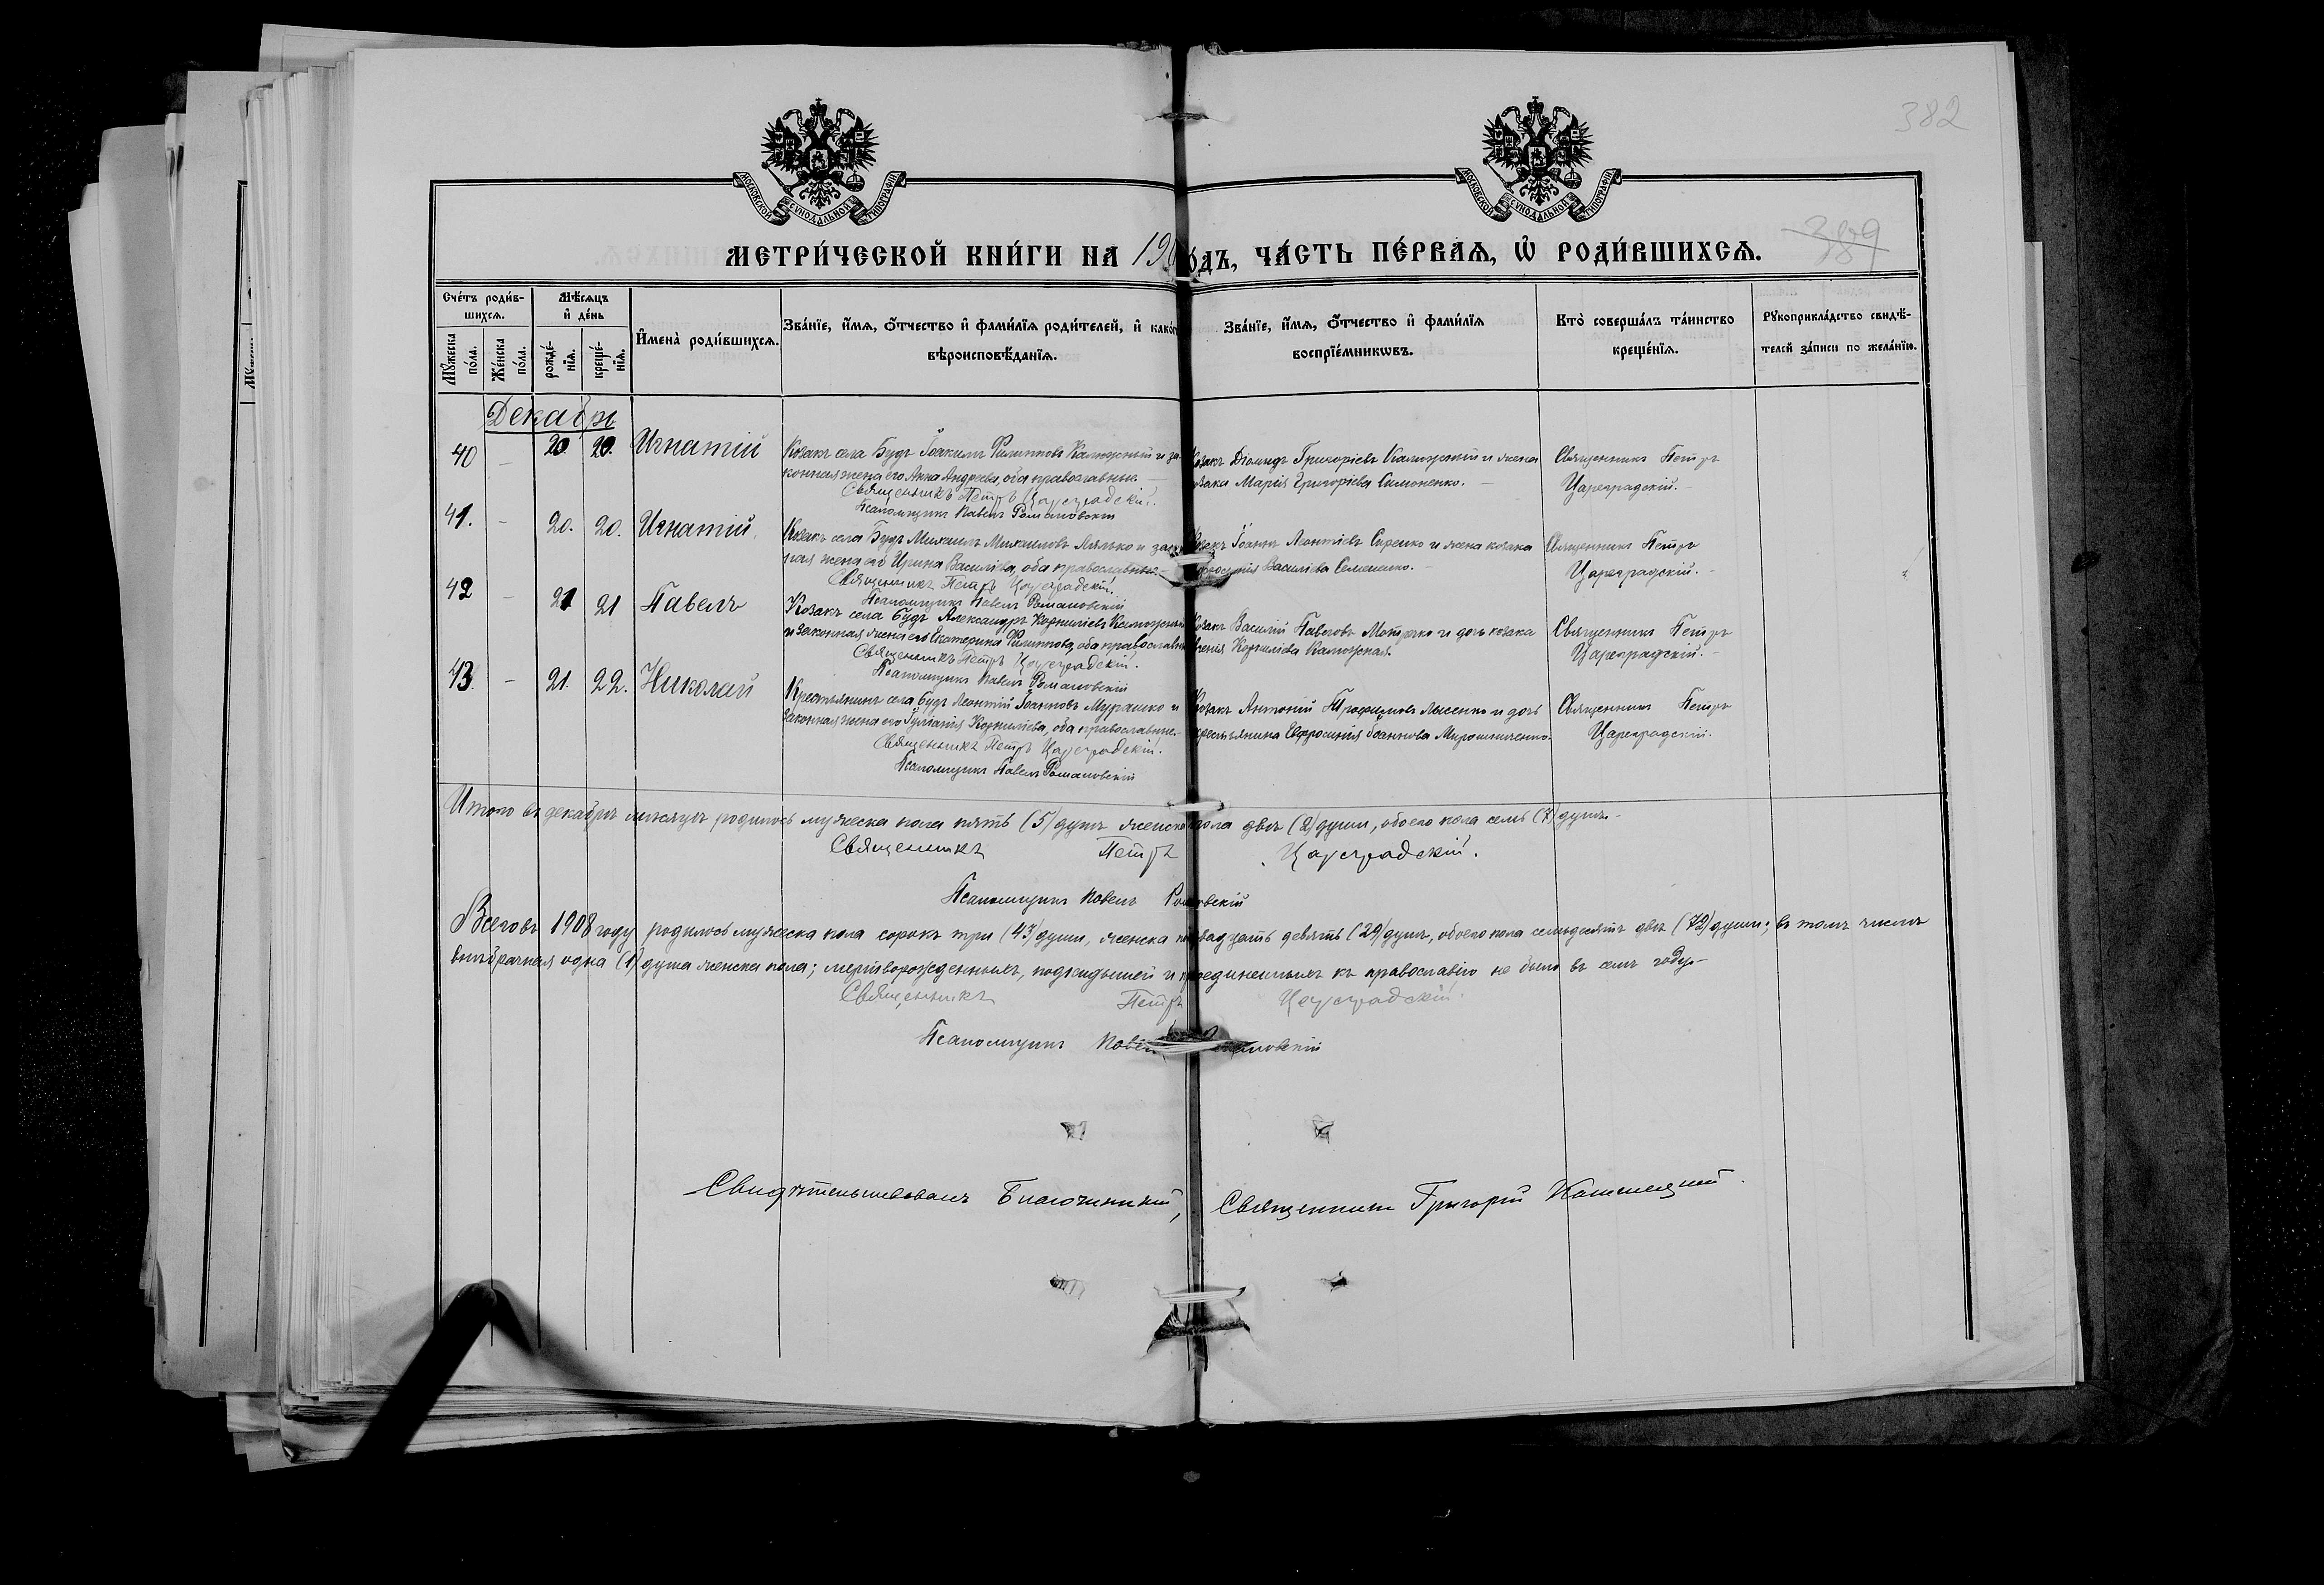 382
МОСКОВСКОЙ СУНОДАЛЬНОЙ ТИПОГРАФІИ
МОСКОВСКОЙ СУНОДАЛЬНОЙ ТИПОГРАФІИ
389
МЕТРИ́ЧЕСКОЙ КНИ́ГИ НА 190 ОДЪ, ЧА́СТЬ ПЕ́РВАѦ, Ѡ РОДИ́ВШИХСѦ.
Сче́тъ роди́в-
шихсѧ.
Мѣ́сѧцъ
и҆ де́нь
И҆мена̀ роди́вшихсѧ.
Зва́нїе, и҆́мѧ, ѻ҆́тчество и҆ фами́лїѧ роди́телей, и҆ како́г
вѣроисповѣ́данїѧ.
Зва́нїе, и҆́мѧ, ѻ҆́тчество и҆ фами́лїѧ
воспрїе́мникѡвъ.
Кто̀ соверша́лъ та́инство
креще́нїѧ.
Рꙋкоприкла́дство свидѣ́-
телей за́писи по жела́нїю.
Мꙋ́жеска по́ла.
Же́нска по́ла.
рожде́-нїѧ.
креще́-нїѧ.
Декабрь
40 – 20 20. Игнатій
Козакъ села Будъ Іоакимъ Филипповъ Калюжный и за-
конная жена его Анна Андреева, оба православные. –
Священникъ Петръ Цареградскій.
Псаломщикъ Павелъ Романовскій
Козакъ Діомидъ Григоріевъ Калюжный и жена
козака Марія Григоріева Симоненко. –
Священникъ Петръ
Цареградскій. –
41. – 20. 20. Игнатій
Козакъ села Будъ Михаилъ Михаиловъ Лялько и закон
ная жена его Ирина Васильева, оба православные –
Священникъ Петръ Цареградскій.
Псаломщикъ Павелъ Романовскій
Козакъ Іоаннъ Леонтіевъ Сиренко и жена козака
Васильева Семененко. –
Священникъ Петръ
Цареградскій. –
42 – 21 21 Павелъ
Козакъ села Будъ Александръ Корниліевъ Калюжный
и законная жена его Екатерина Филиппова, оба православны
Священникъ Петръ Цареградскій.
Псаломщикъ Павелъ Романовскій
Козакъ Василій Павловъ и дочь козака
Корниліева Калюжная.
Священникъ Петръ
Цареградскій. –
43. – 21. 22. Николай
Крестьянинъ села Будъ Леонтій Іоанновъ Мурашко и
законная жена его Іуліанія Корниліева, оба православные –
Священникъ Петръ Цареградскій.
Псаломщикъ Павелъ Романовскій
Козакъ Антоній Трофимовъ Лысенко и дочь
крестьянина Евфросинія Іоаннова Мирошниченко.
Священникъ Петръ
Цареградскій.
Итого въ декабрѣ мѣсяцѣ родилось мужеска пола пять (5) душъ женска пола двѣ (2) души, обоего пола семь (7) душъ. –
Священникъ Петръ Цареградскій.
Псаломщикъ Павелъ Ром овскій
Всего въ 1908 году родилось мужеска пола сорокъ три (43) души, женска п двадцать девять (29) душъ, обоего пола семьдесятъ двѣ (72) души; въ томъ числѣ
внѣбрачная одна (1) душа женска пола; мертворожденныхъ, подкидышей и присоединенныхъ къ православію не было въ семъ году. –
Священникъ Петръ Цареградскій.
Псаломщикъ Павел мановскій
Свидѣтельствовалъ Благочинный, Священникъ Григорій